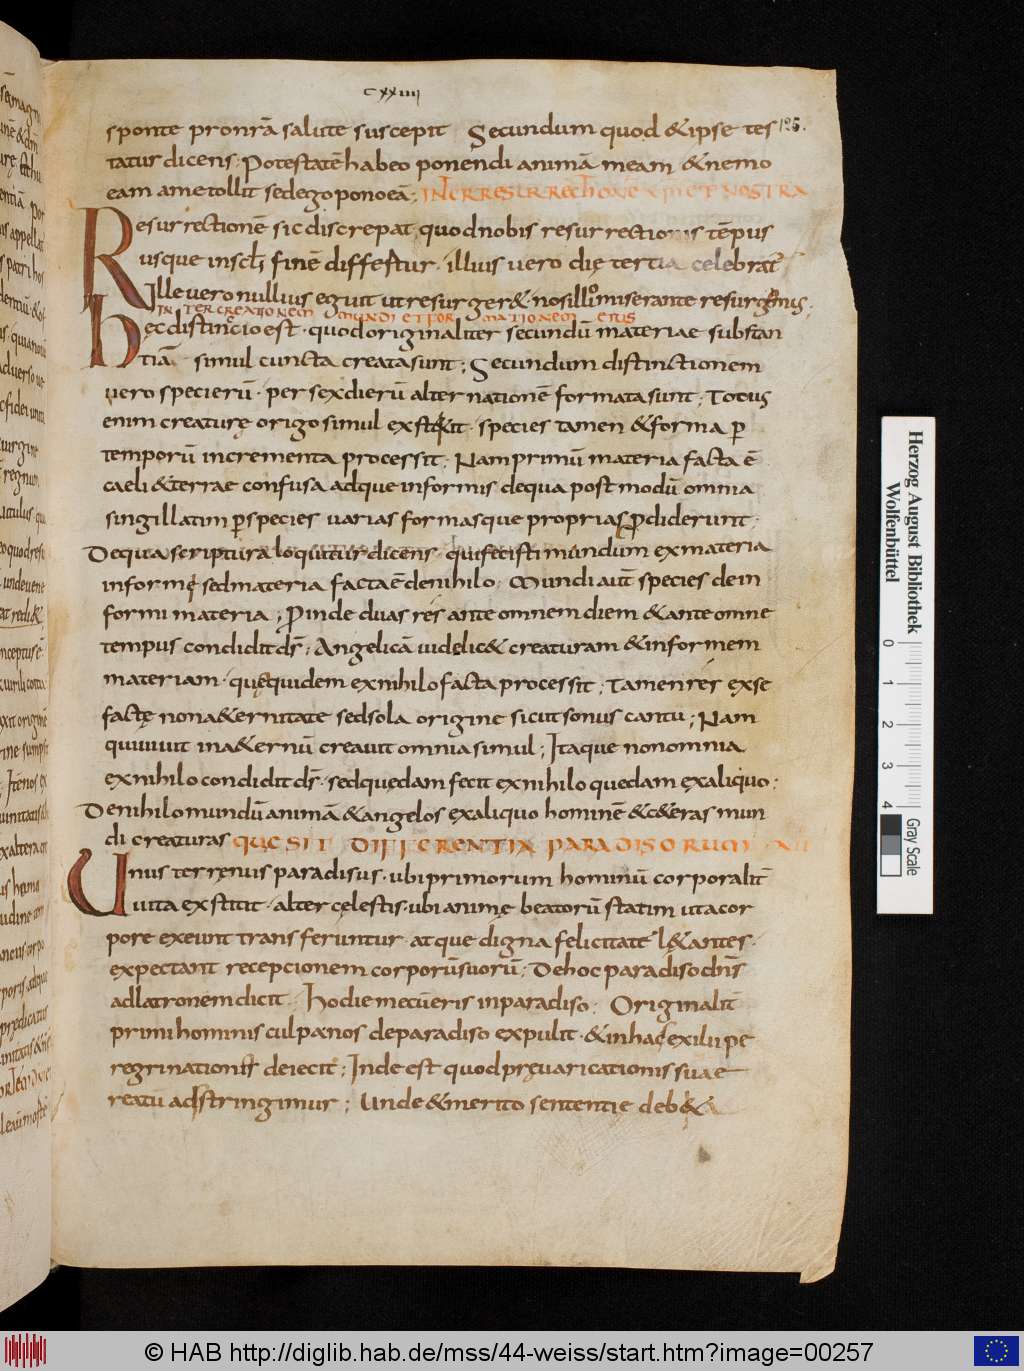 cxxiiii
125.
sponte pro nrā salute suscepit Secundum quod & ipse tes
tatur dicens; Potestatē habeo ponendi animā meam & nemo
eam a me tollit sed ego pono eā; INTER RESURRECTIONE XPI ET NOSTRA
Resurrectionē sic discrepat, quod nobis resurrectionis tēpus
usque in scli finē differtur. illius vero die tertia celebrat̄
Ille vero nullius eguit ut resurger&. nos illo miserante resurgemus;
INTER CREATIONEM MUNDI ET FORMATIONEM EIUS
hęc distinctio est. quod originaliter secundū materiae substan
tiā simul cuncta creata sunt; Secundum distinctionem
vero specierū. per sex dierū alternationē formata sunt; Totius
enim creaturę origo simul exstitit. species tamen & forma p̄
temporū incrementa processit; Nam primū materia facta ē
caeli & terrae confusa adque informis de qua postmodū omnia
singillatim p̄ species varias formasque proprias prodiderunt;
De qua scriptura loquitur dicens. qui fecisti mundum ex materia
informe sed materia facta ē de nihilo. Mundi aut̄ species de in
formi materia; Proinde duas res ante omnem diem & ante omne
tempus condidit ds̄; Angelicā videlic& creaturam & informem
materiam. quę quidem ex nihilo facta processit; Tamen res ex se
factę non a&ernitate sed sola origine sicut sonus cantu; Nam
qui vivit in a&ernū creavit omnia simul; Itaque non omnia
ex nihilo condidit ds̄. sed quędam fecit ex nihilo quedam ex aliquo;
De nihilo mundū animā & angelos ex aliquo hominē & c&eras mun
di creaturas QUE SIT DIFFERENTIA PARADISORUM
Unus terrenus paradisus. ubi primorum hominū corporalit̄
vita exstitit. alter cęlestis. ubi animę beatorū statim ut a cor
pore exeunt transferuntur. atque digna felicitate l&antes.
expectant recepcionem corporū suorū; De hoc paradiso dn̄s
ad latronem dicit. Hodie mecū eris in paradiso. Originalit̄
primi hominis culpa nos de paradiso expulit. & in hac exilii pe
regrinationis deiecit; Inde est quod pręvaricationis suae
reatu adstringimur; Unde & merito sententię deb&
Herzog August Bibliothek
Wolfenbüttel
0 1 2 3 4
Gray Scale
© HAB http://diglib.hab.de/mss/44-weiss/start.htm?image=00257